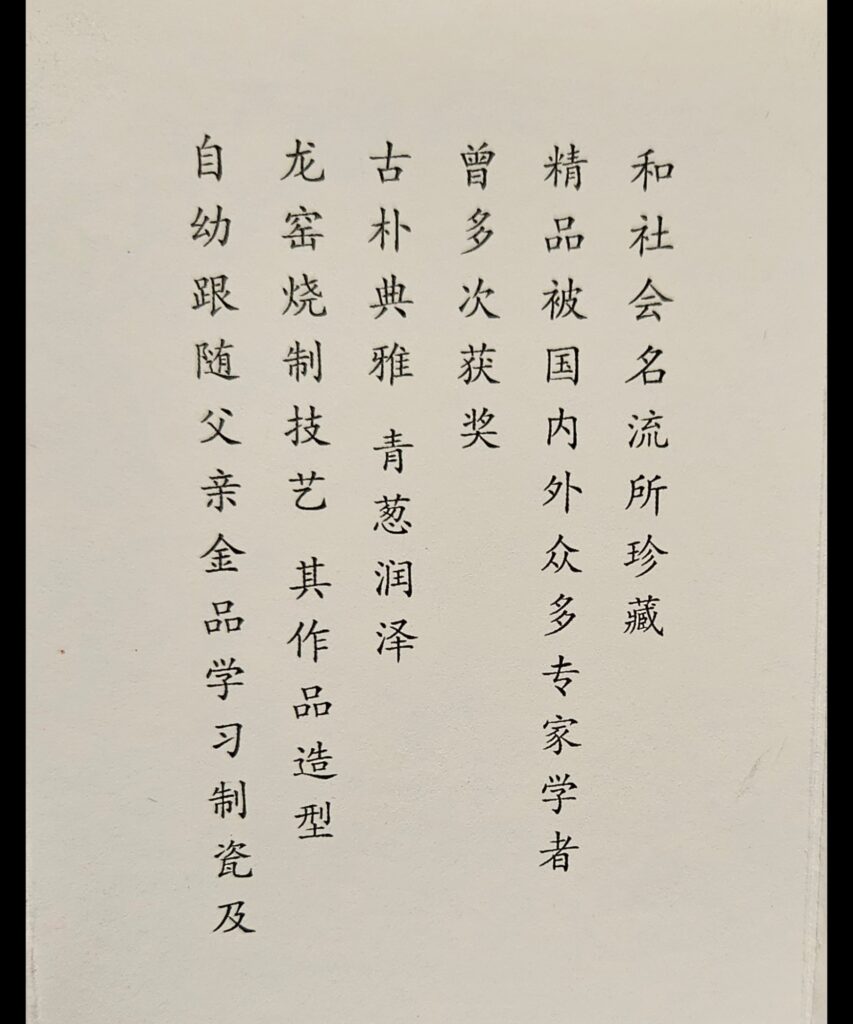 自幼跟随父亲金品学习制瓷及
龙窑烧制技艺 其作品造型
古朴典雅 青葱润泽
曾多次获奖
精品被国内外众多专家学者
和社会名流所珍藏